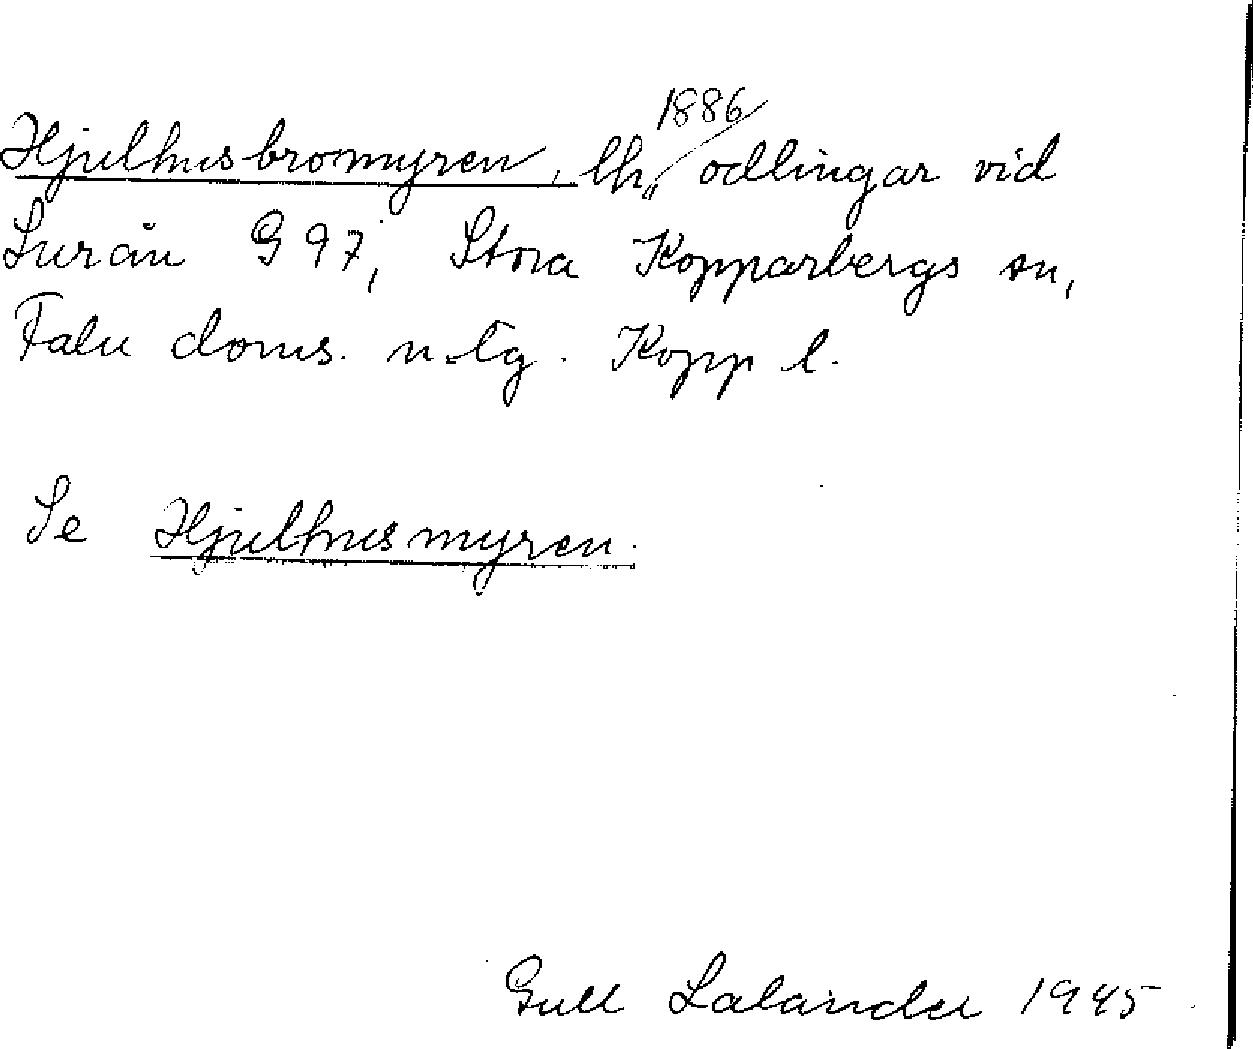 Hjulhusbromyren, lh., 1886 odlingar vid
Lurån G 97, Stora Kopparbergs sn,
Falu doms. n. tg. Kopp l.
Se Hjulhusmyren.
Gull Lalander 1945